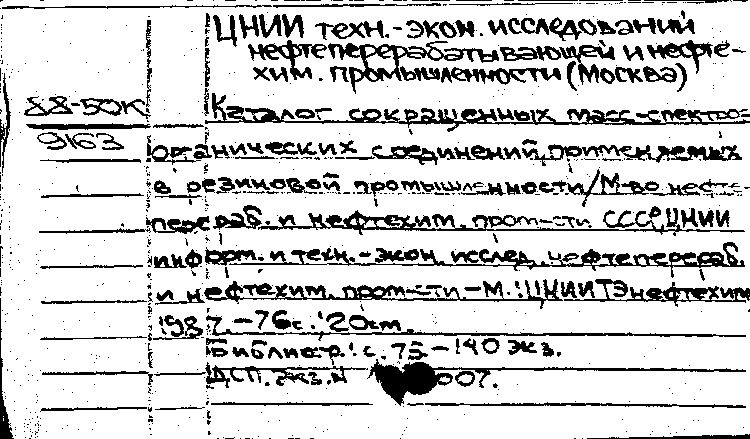 ЦНИИ техн.-экон. исследований
нефтеперерабатывающей и нефте-
хим. промышленности (Москва)
88-50К
Каталог сокращенных масс-спектров
9163
органических соединений, применяемых
в резиновой промышленности / М-во нефте-
перераб. и нефтехим. пром-сти СССР, ЦНИИ
информ. и техн.-экон. исслед. нефтеперераб.
и нефтехим. пром-сти. - М.: ЦНИИТЭнефтехим
1987. - 76с.: 20см.
Библиогр.: с. 75. - 140 экз.
ДСП. Экз. N 007.